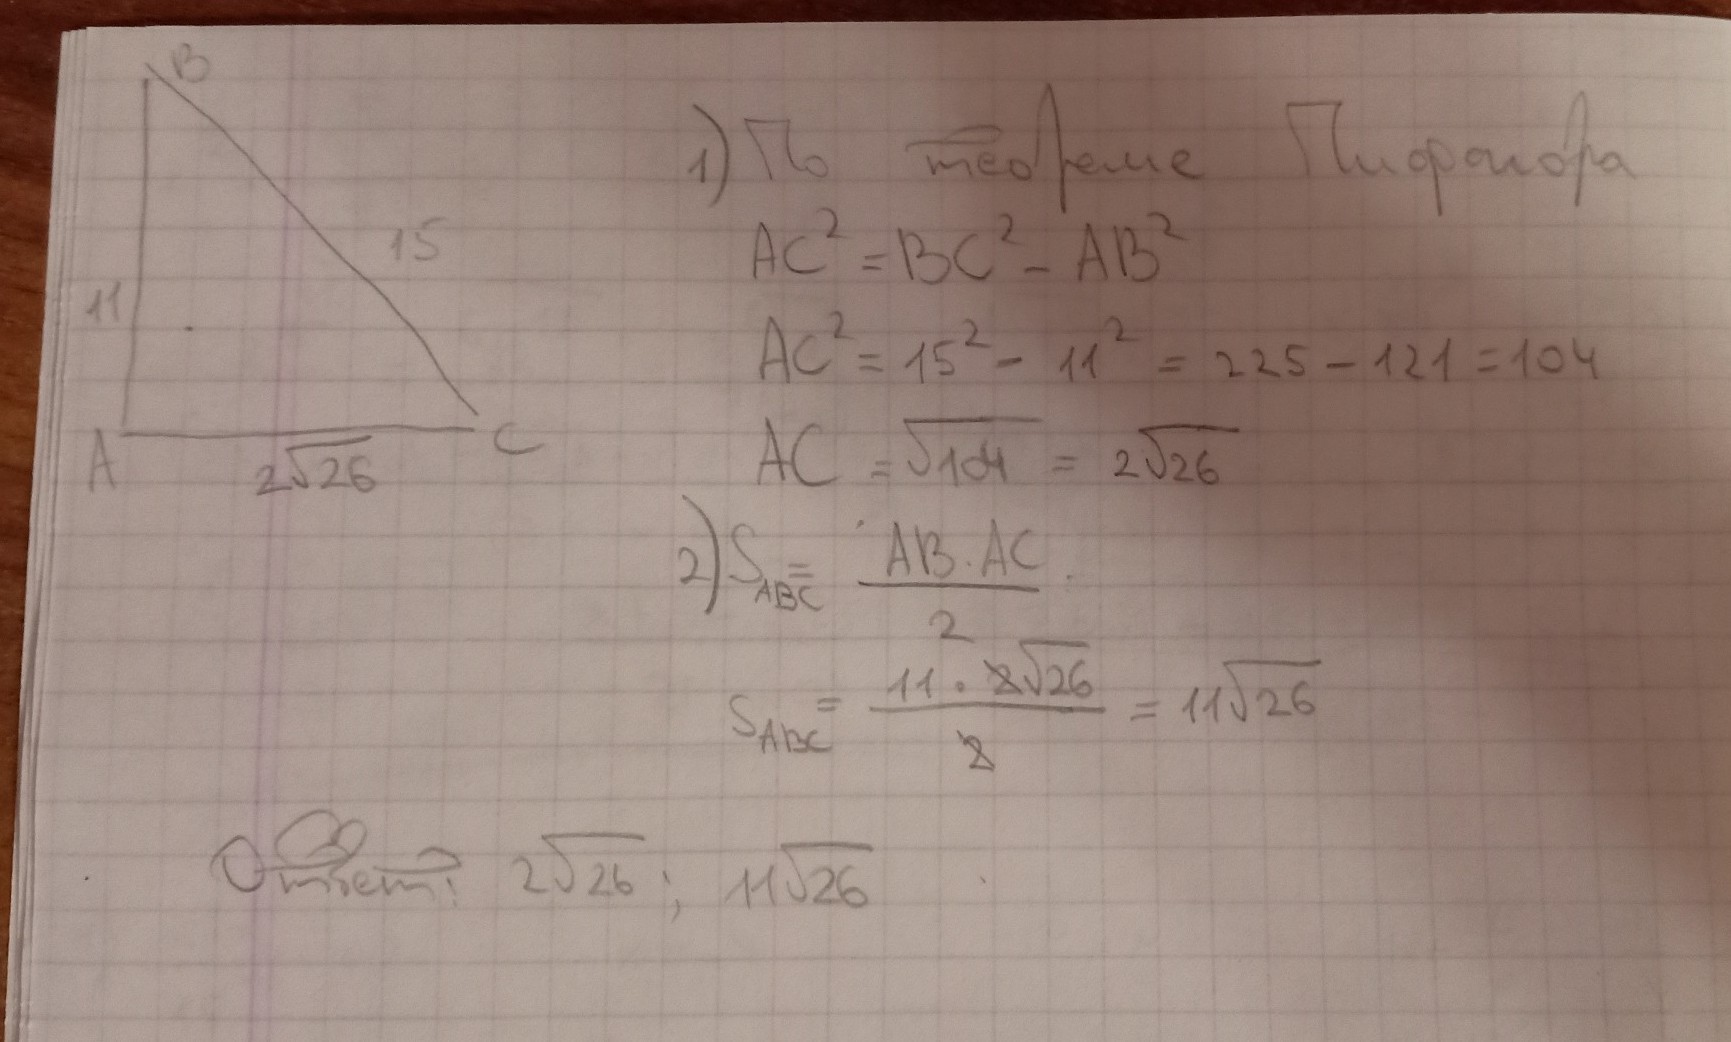 B
15
11
A
C
2√26
1) По теореме Пифагора
AC² = BC² - AB²
AC² = 15² - 11² = 225 - 121 = 104
AC = √104 = 2√26
2) S_ABC = AB · AC / 2
S_ABC = 11 · 2√26 / 2 = 11√26
Ответ: 2√26; 11√26